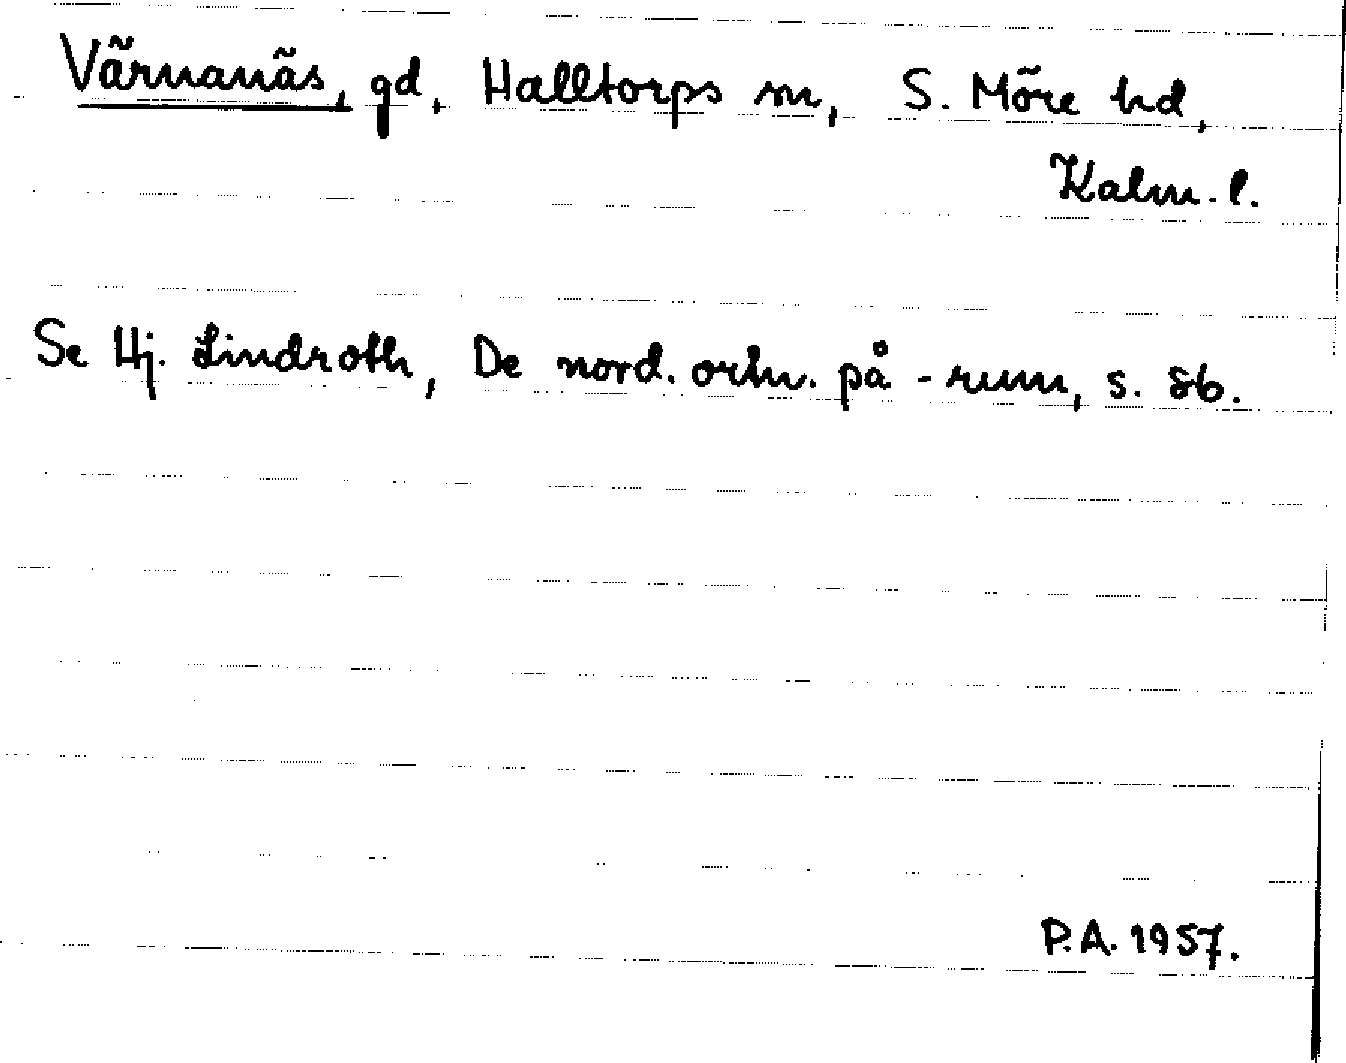 Värnanäs, gd, Halltorps sn, S. Möre hd,
Kalm. l.
Se Hj. Lindroth, De nord. ortn. på -rum, s. 86.
P.A. 1957.